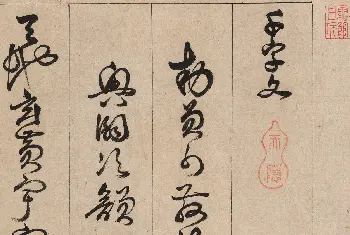 千字文
勅員外散
興嗣次韻
天地玄黃宇